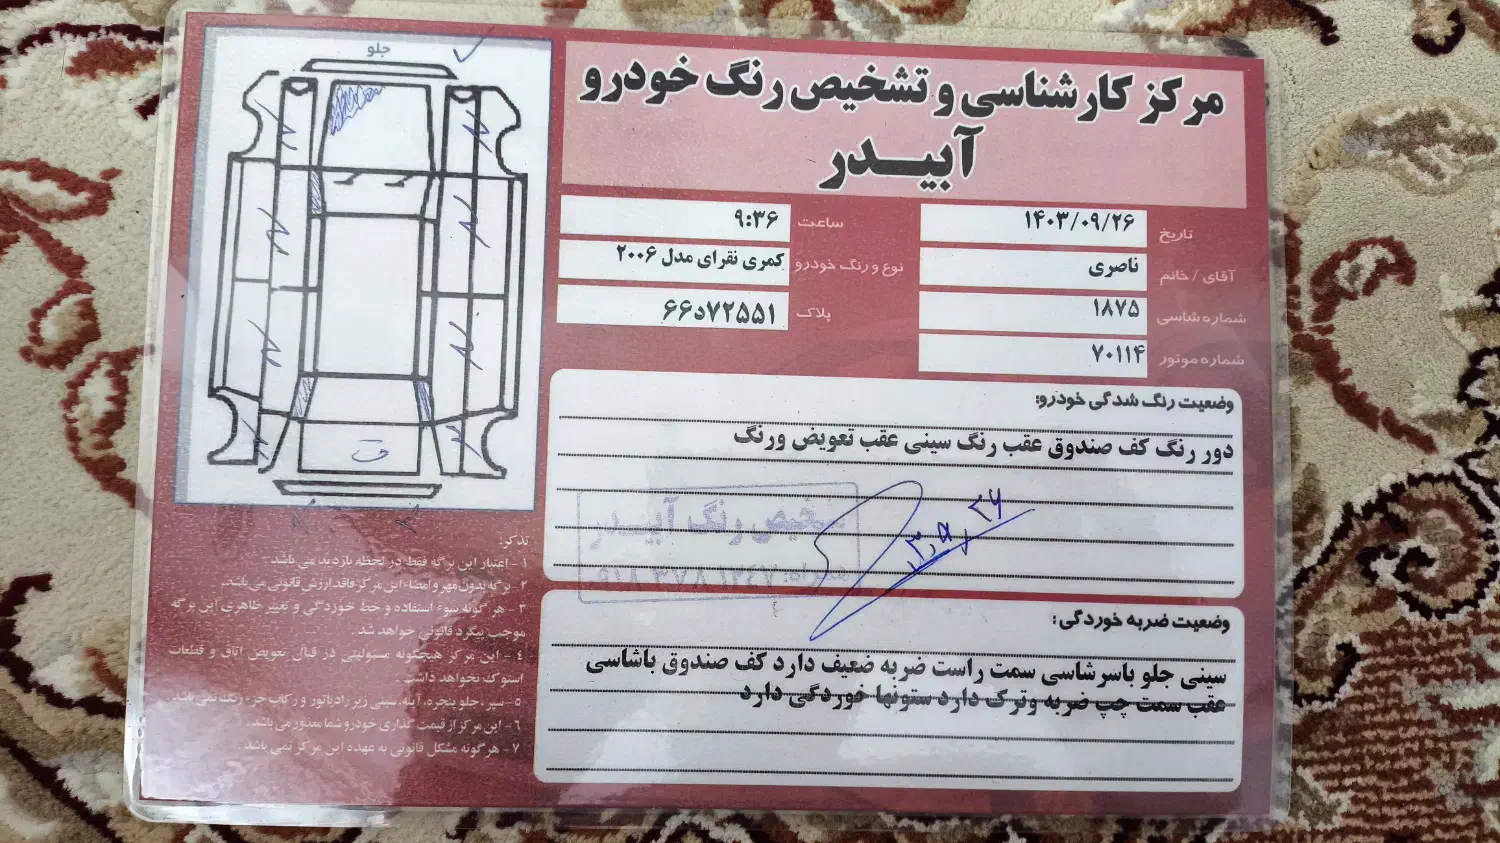 جلو
مرکز کارشناسی و تشخیص رنگ خودرو
آبیـــدر
تاریخ ۱۴۰۳/۰۹/۲۶
ساعت ۹:۳۶
آقای / خانم ناصری
نوع و رنگ خودرو کمری نقرای مدل ۲۰۰۶
شماره شاسی ۱۸۷۵
پلاک ۶۶د۷۲۵۵۱
شماره موتور ۷۰۱۱۴
وضعیت رنگ شدگی خودرو:
دور رنگ کف صندوق عقب رنگ سینی عقب تعویض ورنگ
تشخیص رنگ آبیـــدر
همراه: ۰۹۱۸۳۷۸۱۲۴۷
وضعیت ضربه خوردگی:
سینی جلو باسرشاسی سمت راست ضربه ضعیف دارد کف صندوق باشاسی
عقب سمت چپ ضربه وترک دارد ستونها خوردگی دارد
تذکر:
۱ - اعتبار این برگه فقط در لحظه بازدید می باشد.
۲- برگه بدون مهر و امضاء این مرکز فاقد ارزش قانونی می باشد.
۳ - هر گونه سوء استفاده و خط خوردگی و تغییر ظاهری این برگه
موجب پیگرد قانونی خواهد شد.
۴ - این مرکز هیچگونه مسئولیتی در قبال تعویض اتاق و قطعات
استوک نخواهد داشت.
۵- سپر، جلو پنجره، آینه، سینی زیر رادیاتور و رکاب جزء رنگ نمی باشد.
۶ - این مرکز از قیمت گذاری خودرو شما معذور می باشد.
۷ - هر گونه مشکل قانونی به عهده این مرکز نمی باشد.